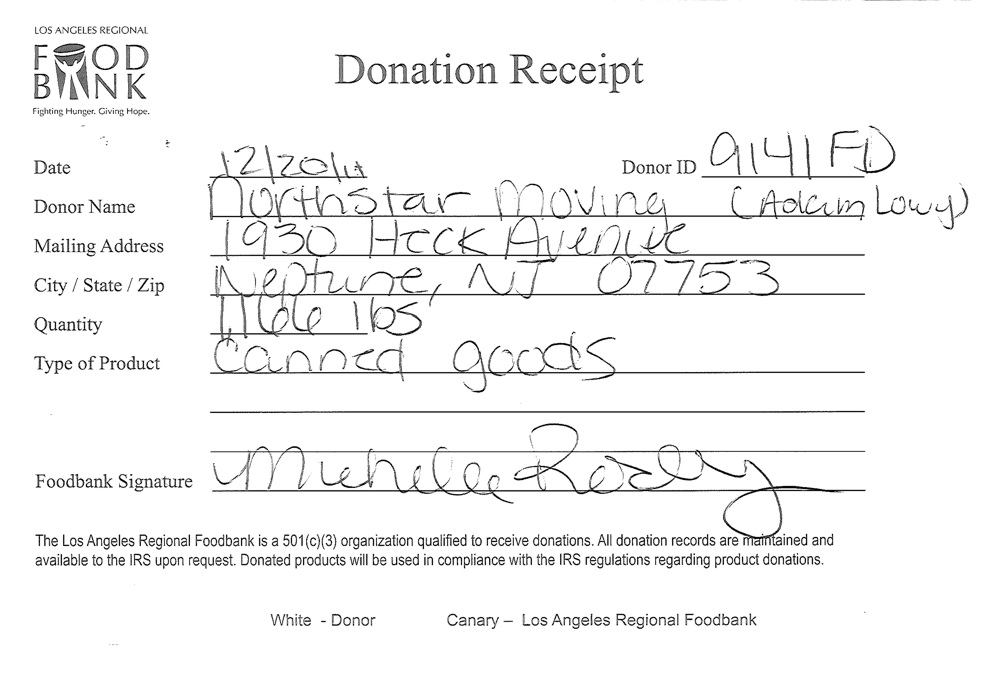 LOS ANGELES REGIONAL
FOOD
BANK
Fighting Hunger. Giving Hope.
Donation Receipt
Date 12/20/11 Donor ID 9141FD
Donor Name Northstar Moving (Adam Lowy)
Mailing Address 1930 Heck Avenue
City / State / Zip Neptune, NJ 07753
Quantity 1,166 lbs
Type of Product Canned goods
Foodbank Signature Michelle
The Los Angeles Regional Foodbank is a 501(c)(3) organization qualified to receive donations. All donation records are maintained and
available to the IRS upon request. Donated products will be used in compliance with the IRS regulations regarding product donations.
White - Donor Canary – Los Angeles Regional Foodbank